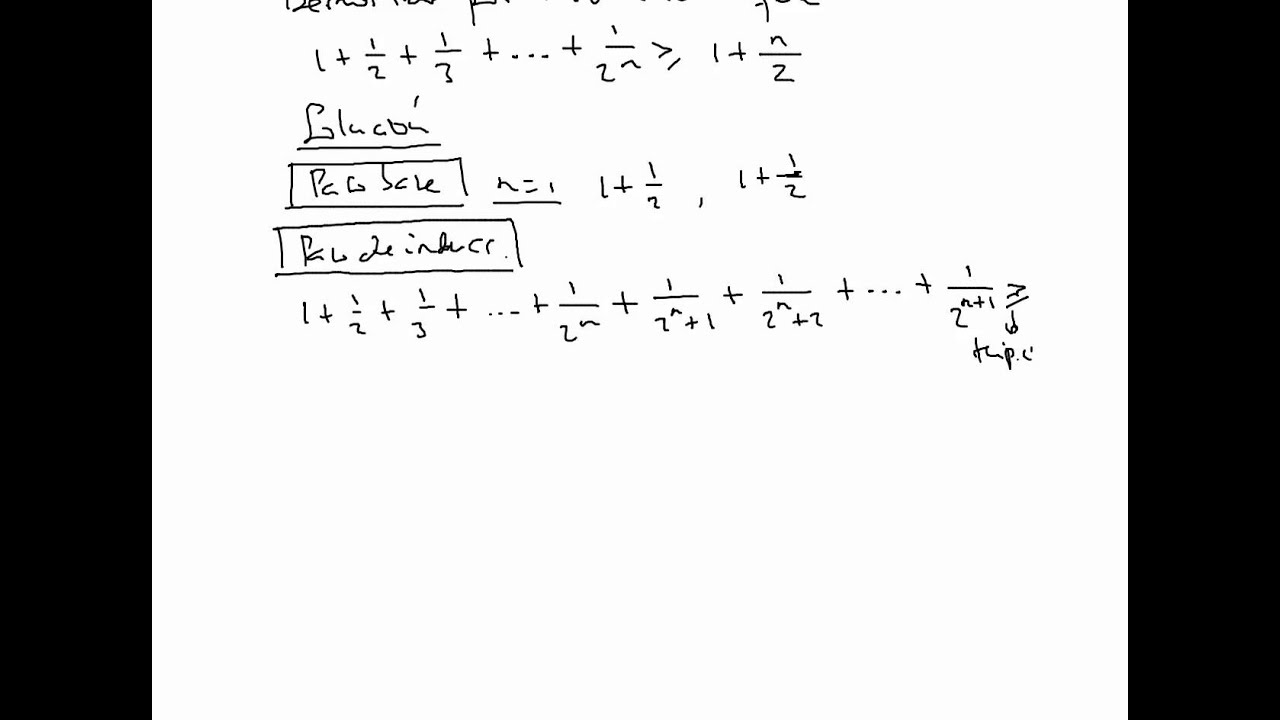 1 + 1/2 + 1/3 + ... + 1/2^n ≥ 1 + n/2
Solución
Paso base n=1 1 + 1/2 , 1 + 1/2
Paso de inducc.
1 + 1/2 + 1/3 + ... + 1/2^n + 1/(2^n+1) + 1/(2^n+2) + ... + 1/2^(n+1) ≥